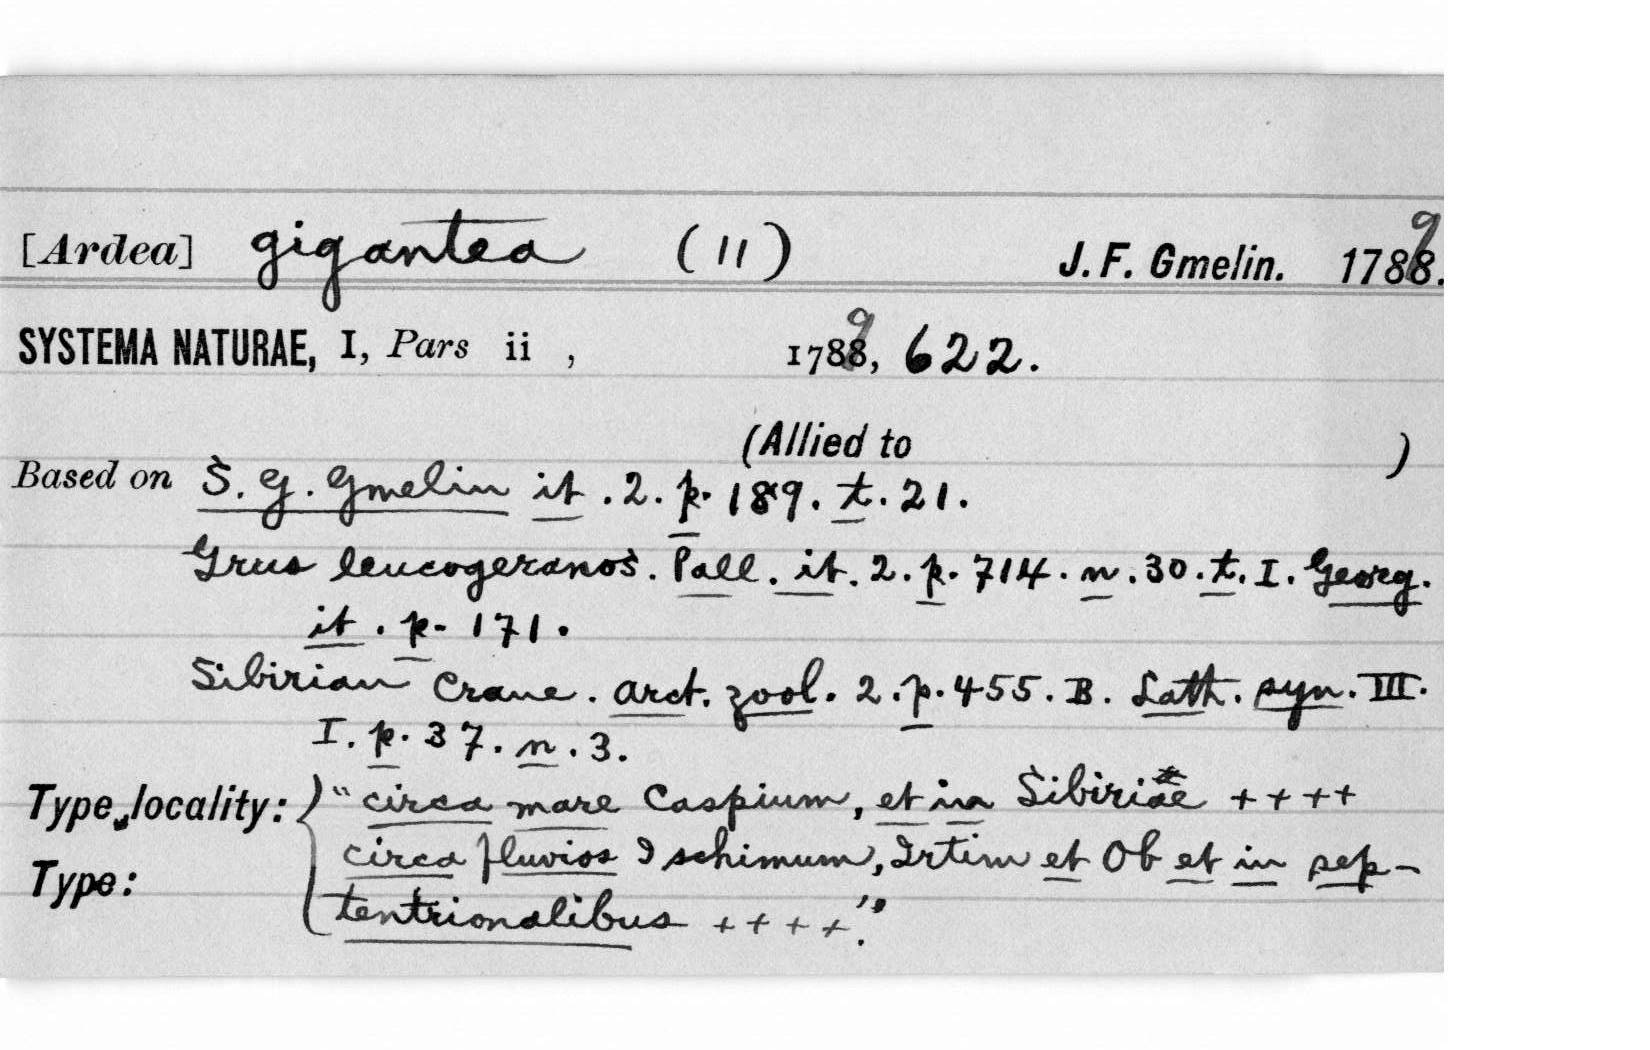 [Ardea] gigantea (11) J. F. Gmelin. 1789.
SYSTEMA NATURAE, I, Pars ii , 1789, 622.
(Allied to )
Based on S. G. Gmelin it. 2. p. 189. t. 21.
Grus leucogeranos. Pall. it. 2. p. 714. n. 30. t. I. Georg.
it. p. 171.
Sibirian Crane. arct. zool. 2. p. 455. B. Lath. syn. III.
I. p. 37. n. 3.
Type locality: "circa mare Caspium, et in Sibiriae ++++
circa fluvios Ischimum, Irtim et Ob et in sep-
Type:
tentrionalibus ++++".